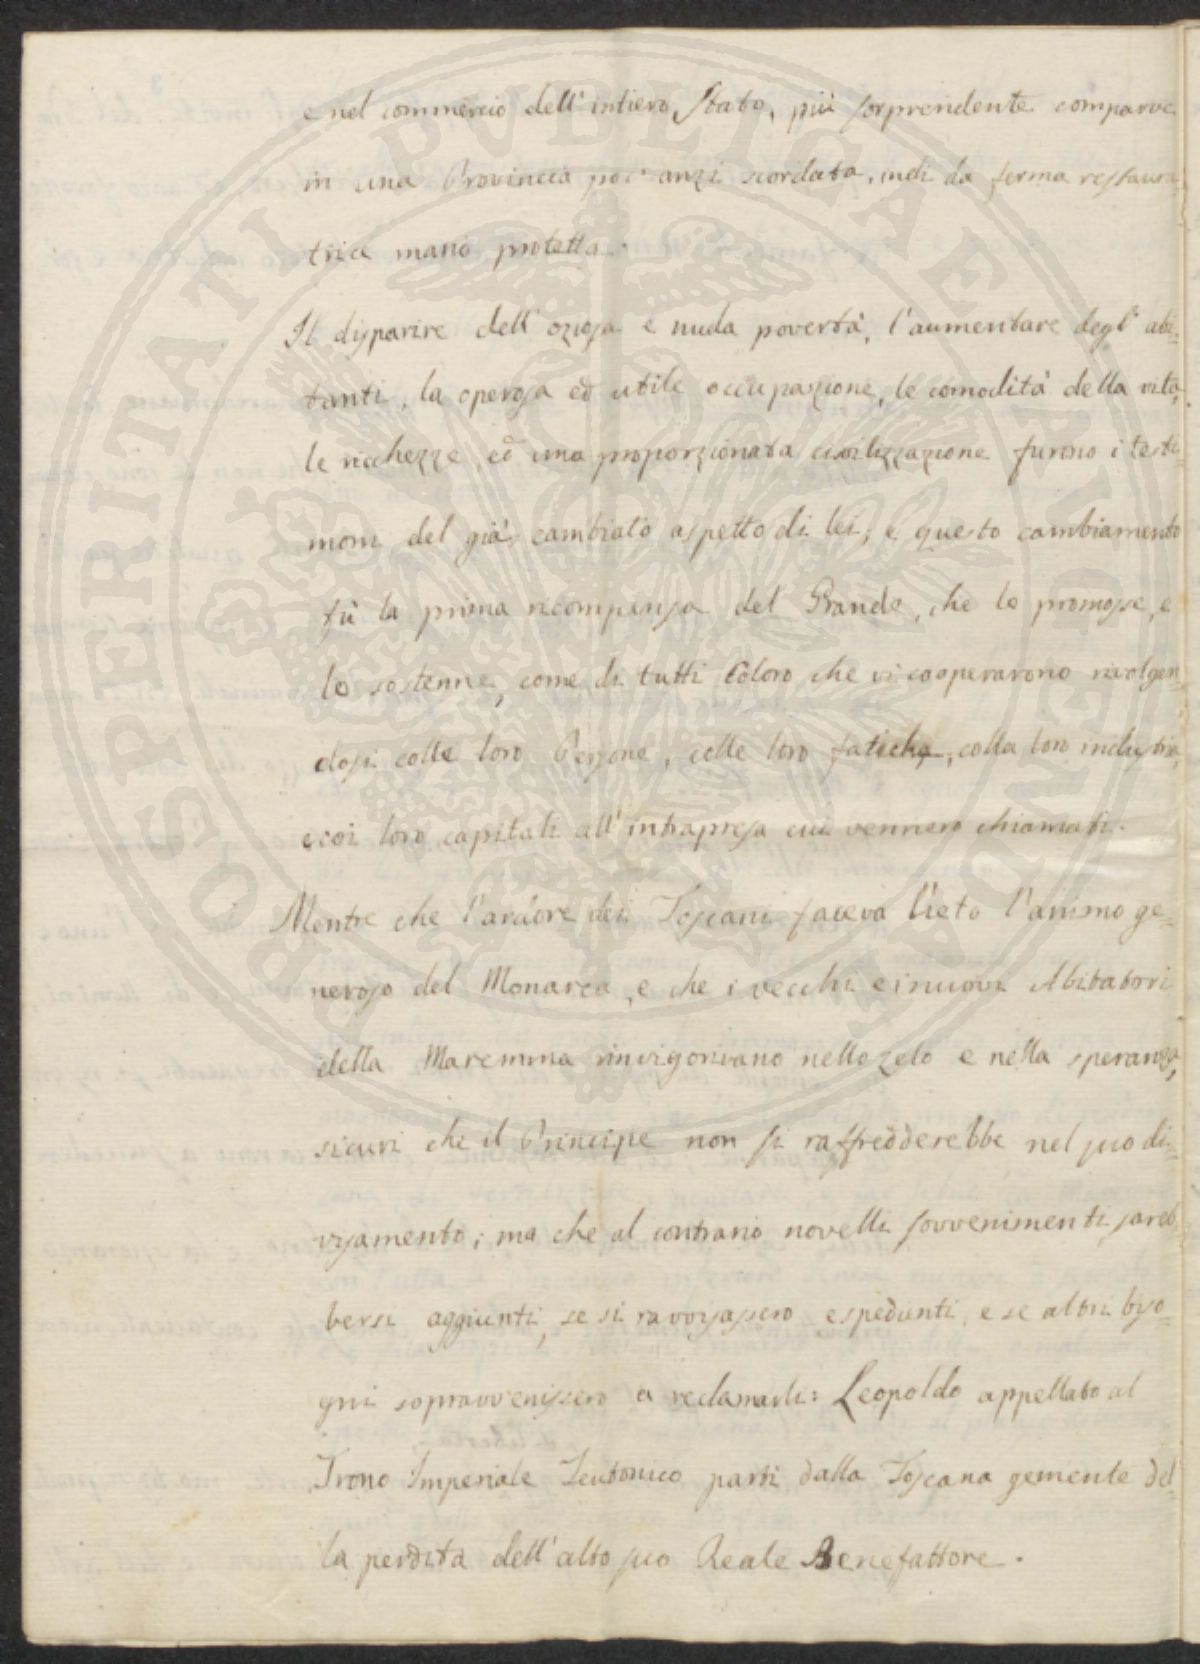 e nel commercio dell'intiero Stato, più sorprendente comparve
in una Provincia poc'anzi scordata, indi da ferma restaura=
trice mano protetta.
Il disparire dell'oziosa e nuda povertà, l'aumentare degl'abi=
tanti, la operosa ed utile occupazione, le comodità della vita,
le ricchezze, ed una proporzionata civilizzazione furono i testi=
moni del già cambiato aspetto di lei; e questo cambiamento
fù la prima ricompensa del Grande, che lo promosse, e
lo sostenne, come di tutti Coloro che vi cooperarono rivolgen=
dosi colle loro Persone, colle loro fatiche, colla loro industria,
e coi loro capitali all'intrapresa cui vennero chiamati.
Mentre che l'ardore dei Toscani faceva lieto l'animo ge=
neroso del Monarca, e che i vecchi e i nuovi Abitatori
della Maremma rinvigorivano nello zelo e nella speranza,
sicuri che il Principe non si raffredderebbe nel suo di=
visamento; ma che al contrario novelli sovvenimenti sareb=
bersi aggiunti, se si ravvisassero espedienti, e se altri biso=
gni sopravvenissero a reclamarli: Leopoldo appellato al
Trono Imperiale Teutonico partì dalla Toscana gemente del=
la perdita dell'alto suo Reale Benefattore.
PROSPERITATI PUBLICAE AUGENDAE